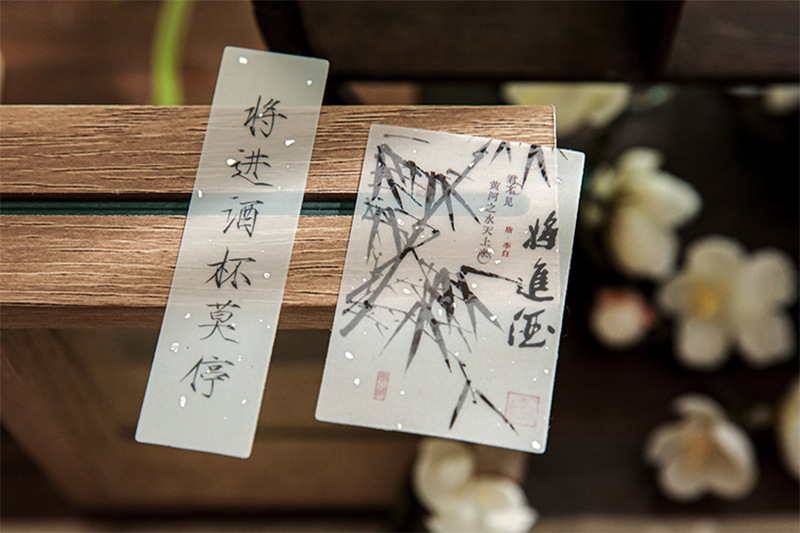 将进酒杯莫停
君不见
黄河之水天上来
唐 李白
将進酒